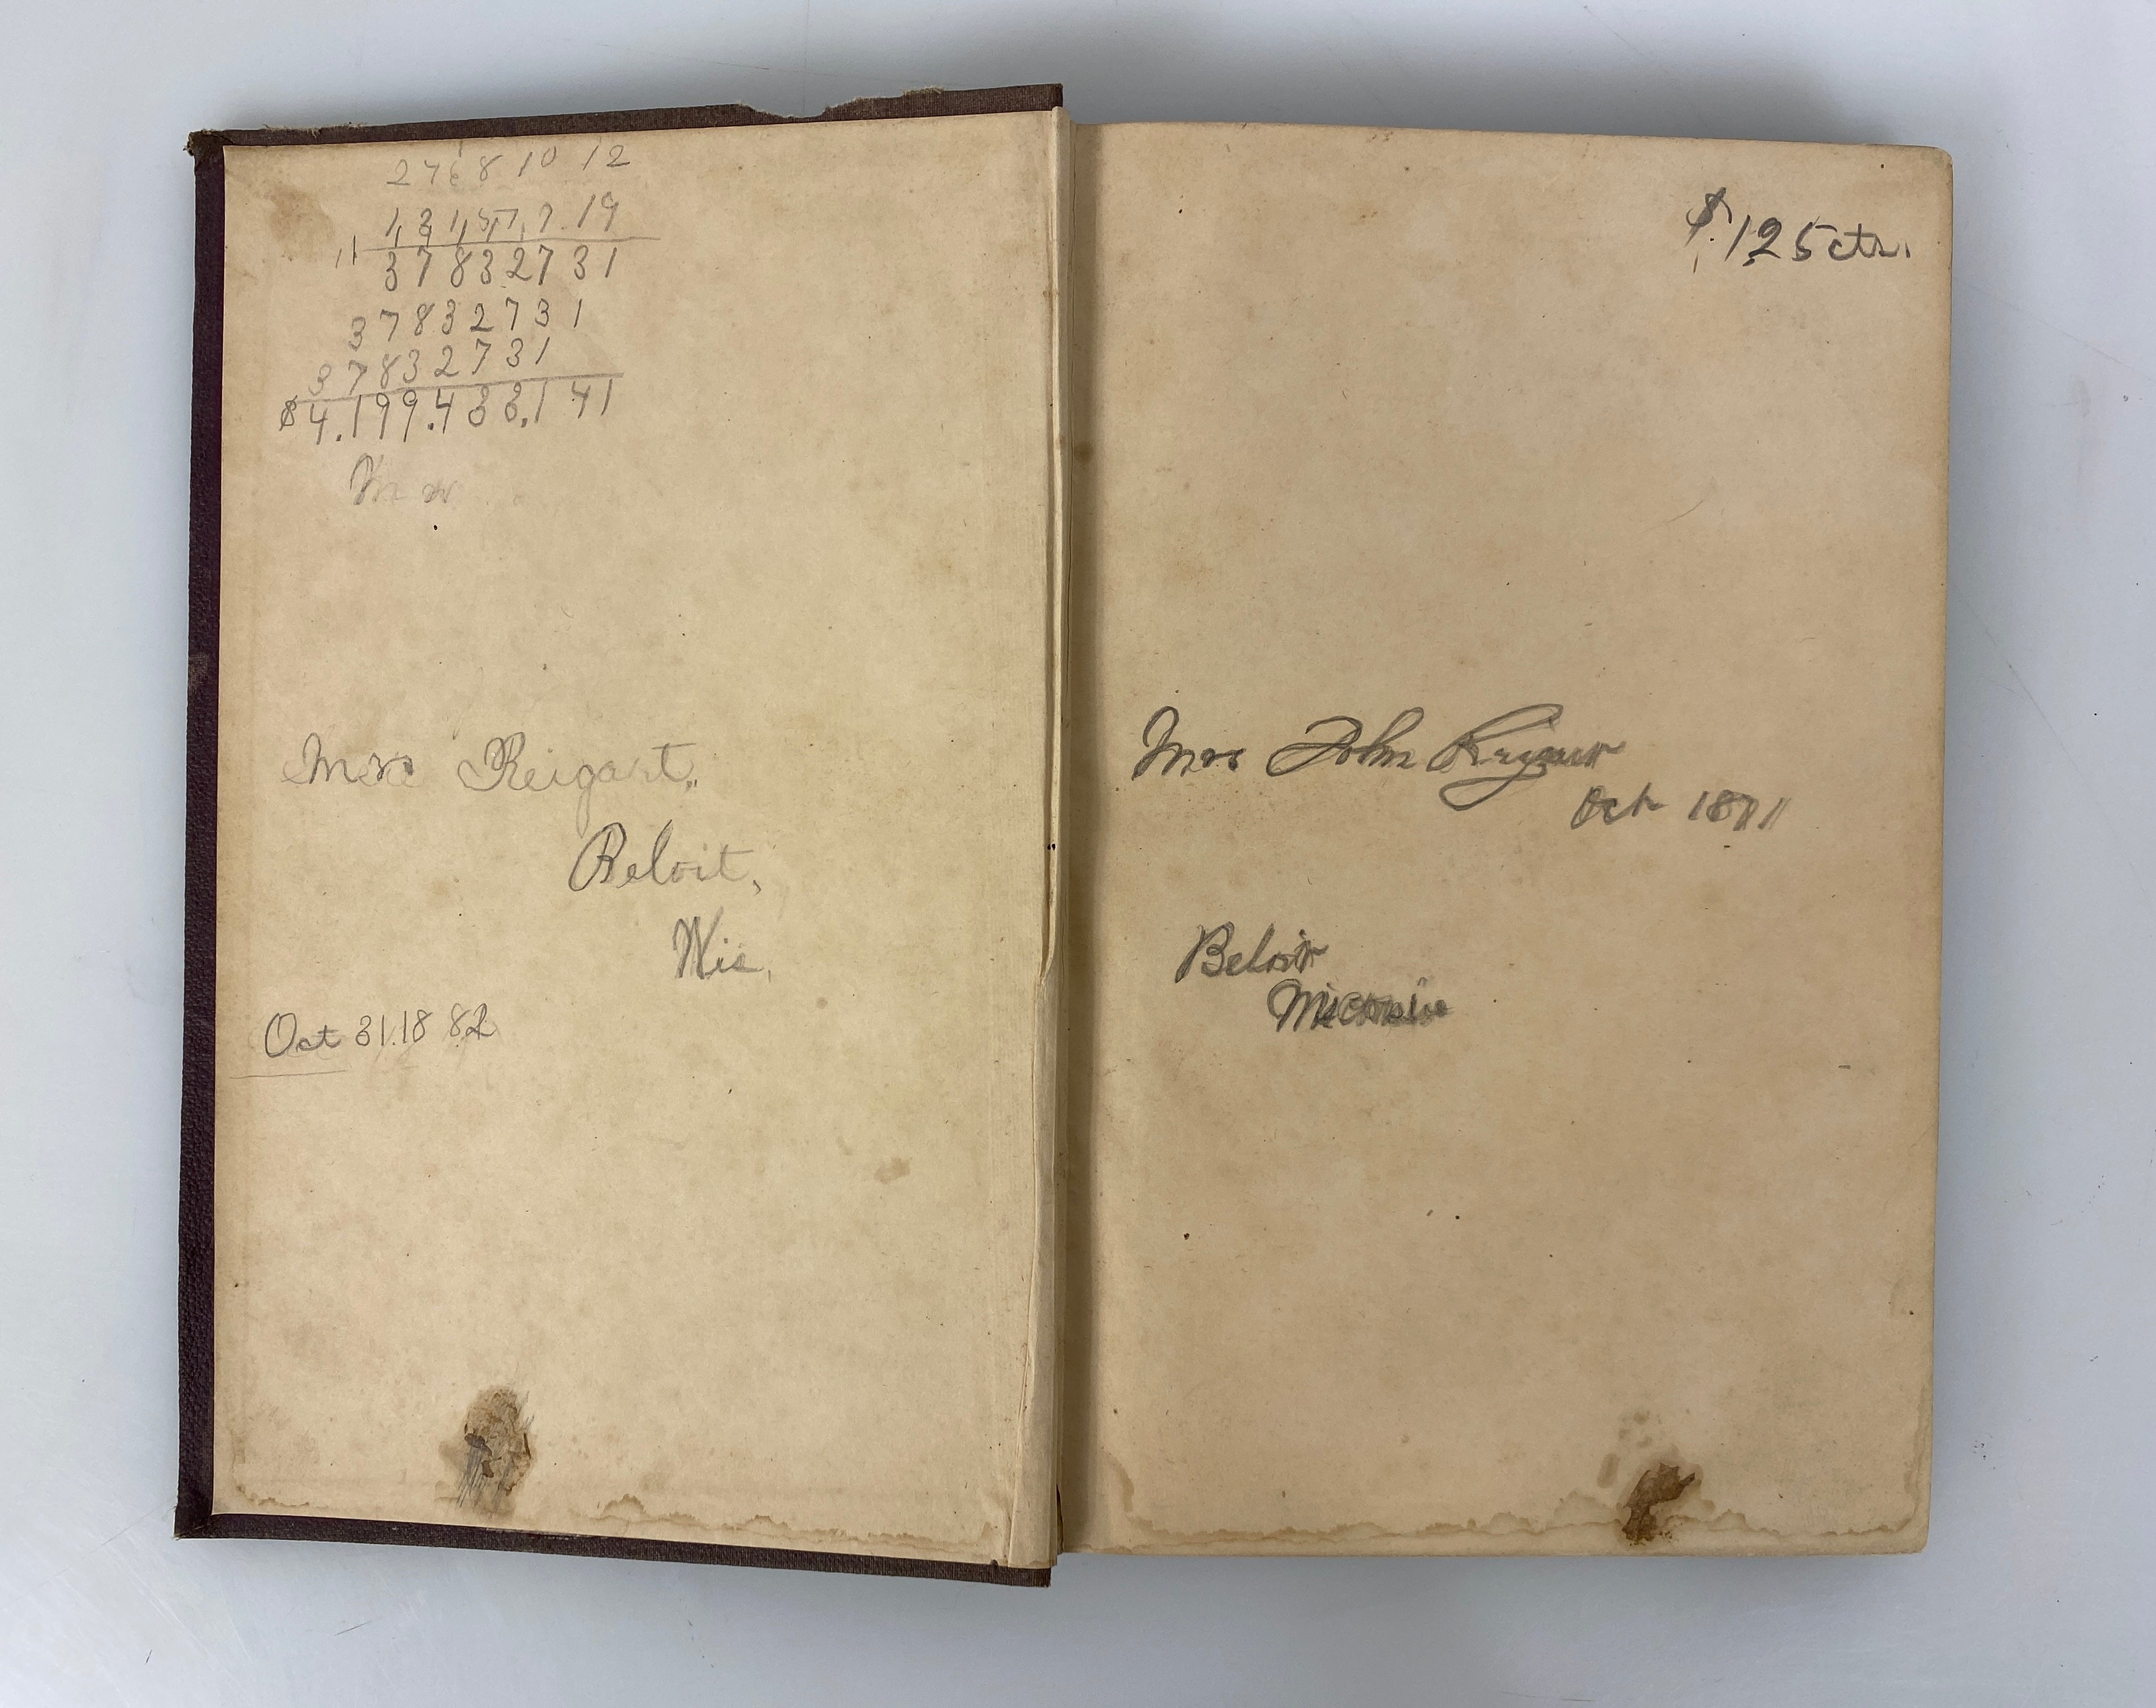 2 7 6 8 10 12
1, 3 1, 5, 7, 9. 19
11 3 7 8 3 2 7 3 1
3 7 8 3 2 7 3 1
3 7 8 3 2 7 3 1
$ 4.199.433.141
Mrs Reigart,
Beloit,
Wis,
Oct 31.18 82
$1,25cts.
Mrs John
Oct 1871
Beloit